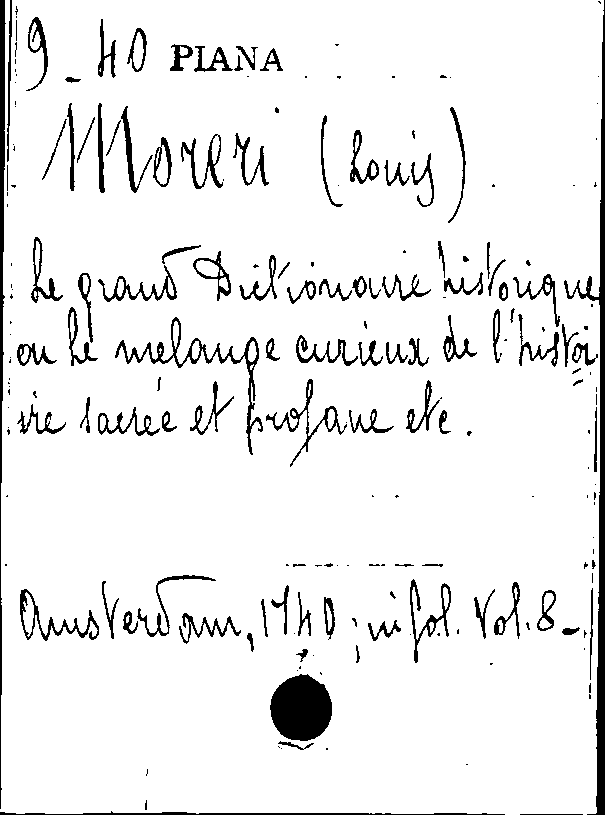 9-40 PIANA
Moreri (Louis)
Le grand Dictionaire historique
ou Le mélange curieux de l'histoi
ire sacrée et profane etc.
Amsterdam, 1740; in fol. Vol. 8-